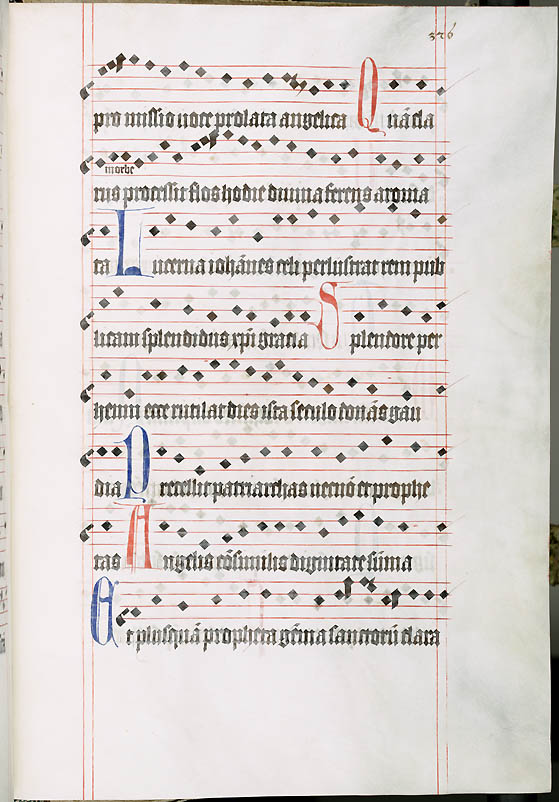 326
pro missio uoce prolata angelica Quā cla
in orbe
rus processit flos hodie diuina ferens aroma
ta Lucerna iohānes celi perlustrat rem pub
licam splendidus xp̄i gracia Splendore per
henni ecce rutilat dies ista seculo donās gau
dia Precellit patriarchas necnō et prophe
tas Angelis cōsimilis dignitate sūma
Et plusquā propheta gēma sanctorū clara